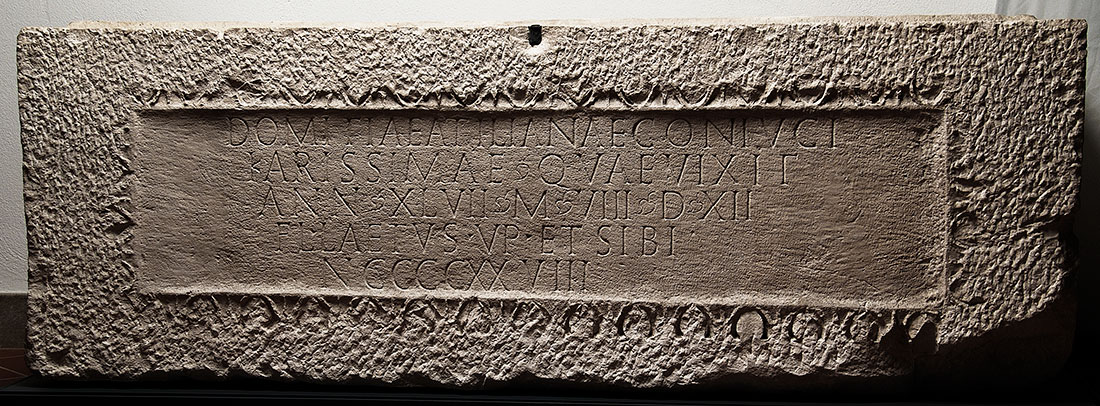 DOMITIAE ATILIANAE CONIVGI
KARISSIMAE QVAE VIXIT
ANN XLVII M VIIII D XII
FL LAETVS VP ET SIBI